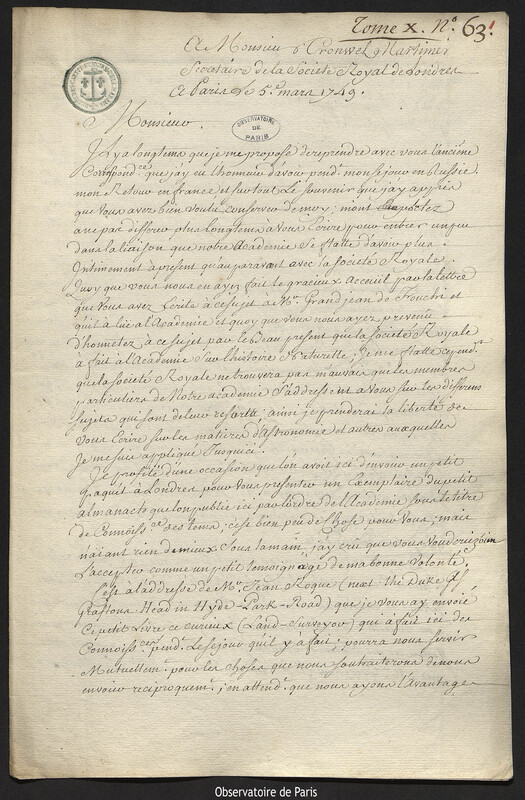 Tome X. N.º 63.
A Monsieur Cromwel Martimer
Secretaire de la Societe Royal de Londres
A Paris le 5.e mars 1749.
OBSERVATOIRE DE PARIS
Monsieur
Il y a longtems que je me propose de reprendre avec vous l'anciéne
Correspond.ce que jay eu l'honneur d'avoir pend.t mon sejour en Russie.
mon Retour en france et surtout Le souvenir que jay appris
que vous avez bien voulu conserver de moy; m'ont
a ne pas differer plus longtems a vous Ecrire pour entrer un peu
dans la liaison que notre Academie se flatte d'avoir plus
Intimement à present qu'auparavant avec la Societé Royale.
que vous nous en ayez fait le gracieux accueil par la lettre
que vous avez Ecrite à ce sujet a Mr. Grandjean de Fouchi et
qu'il à lüe a l'Academie et quoy que vous nous ayez prevenu
d'honnetez à ce sujet par le Beau present que la Societé Royale
à fait à l'Academie sur l'histoire Naturelle; Je me flatte cepend.t
que la Societé Royale ne trouvera pas mauvais que les membres
particuliers de Notre academie s'addressent a vous sur les differens
sujets qui sont de leur ressort; ainsi je prenderai la liberté de
vous Ecrire sur les matieres d'Astronomie et autres auxquelles
Je me suis appliqué Jusqu'ici.
Je profite d'une occasion que l'on avoit ici d'envoier un petit
paquet à Londres pour vous presenter un Exemplaire du petit
almanach que l'on publie ici par l'ordre de l'Academie sous le titre
de Connoiss.ce des tems; c'est bien peu de Chose pour vous; mais
n'aiant rien de mieux sous la main, j'ay crû que vous voudriez bien
l'accepter comme un petit temoignage de ma bonne volonté.
C'est à l'addresse de Mr. Jean Roque (next the Duke of
Graftons Head in Hyde-Park-Road) que je vous ay envoié
Ce petit Livre ce curieux (Land-Surveyor) qui à fait ici des
Connoiss.ces pend.t le sejour qu'il y à fait; pourra nous servir
Mutuellem.t pour les choses que nous souhaiterons de nous
envoier reciproquem.t; en attend.t que nous ayons l'avantage
Observatoire de Paris